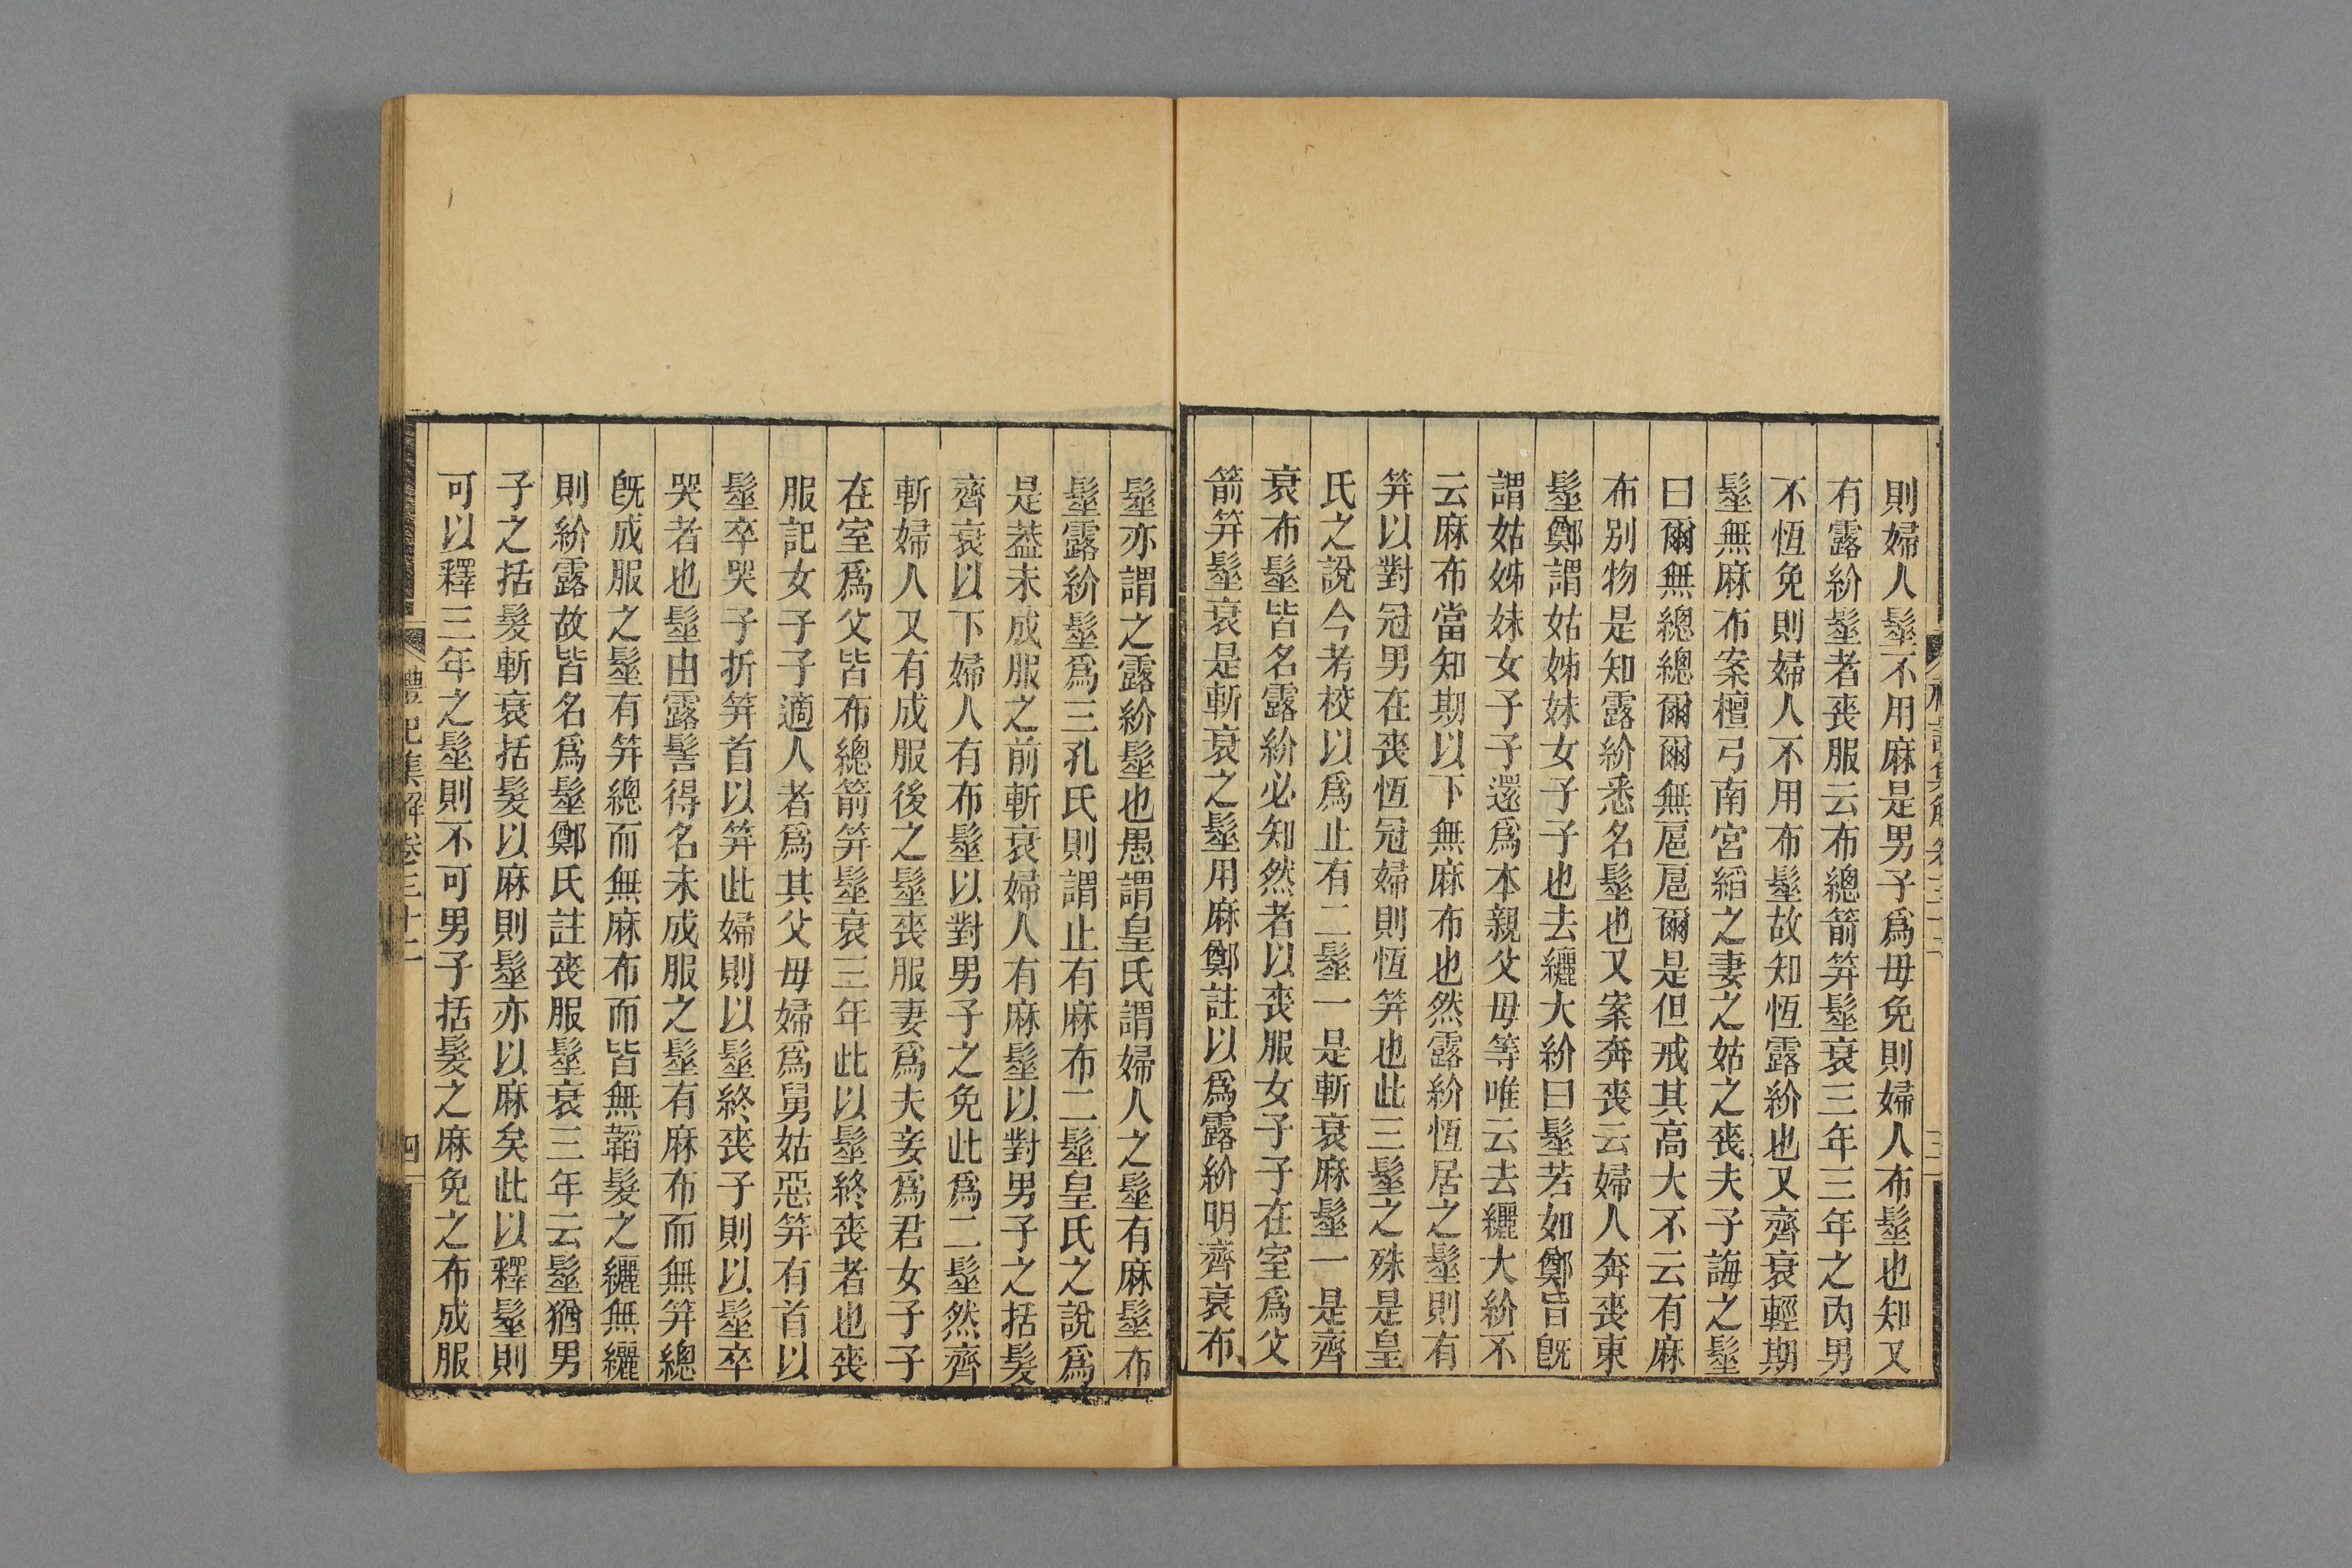 則婦人髽不用麻是男子爲母免則婦人布髽也知又
有露紒髽者喪服云布總箭笄髽衰三年三年之內男
不恆免則婦人不用布髽故知恆露紒也又齊衰輕期
髽無麻布案檀弓南宮縚之妻之姑之喪夫子誨之髽
曰爾無總總爾爾無扈扈爾是但戒其高大不云有麻
布別物是知露紒悉名髽也又案奔喪云婦人奔喪東
髽鄭謂姑姊妹女子子也去纚大紒曰髽若如鄭旨既
謂姑姊妹女子子還爲本親父母等唯云去纚大紒不
云麻布當知期以下無麻布也然露紒恆居之髽則有
笄以對冠男在喪恆冠婦則恆笄也此三髽之殊是皇
氏之說今考校以爲止有二髽一是斬衰麻髽一是齊
衰布髽皆名露紒必知然者以喪服女子子在室爲父
箭笄髽衰是斬衰之髽用麻鄭註以爲露紒明齊衰布
髽亦謂之露紒髽也愚謂皇氏謂婦人之髽有麻髽布
髽露紒髽爲三孔氏則謂止有麻布二髽皇氏之說爲
是葢未成服之前斬衰婦人有麻髽以對男子之括髮
齊衰以下婦人有布髽以對男子之免此爲二髽然齊
斬婦人又有成服後之髽喪服妻爲夫妾爲君女子子
在室爲父皆布總箭笄髽衰三年此以髽終喪者也喪
服記女子子適人者爲其父母婦爲舅姑惡笄有首以
髽卒哭子折笄首以笄此婦則以髽終喪子則以髽卒
哭者也髽由露髻得名未成服之髽有麻布而無笄總
既成服之髽有笄總而無麻布而皆無韜髮之纚無纚
則紒露故皆名爲髽鄭氏註喪服髽衰三年云髽猶男
子之括髮斬衰括髮以麻則髽亦以麻矣此以釋髽則
可以釋三年之髽則不可男子括髮之麻免之布成服
禮記集解卷三十二
四